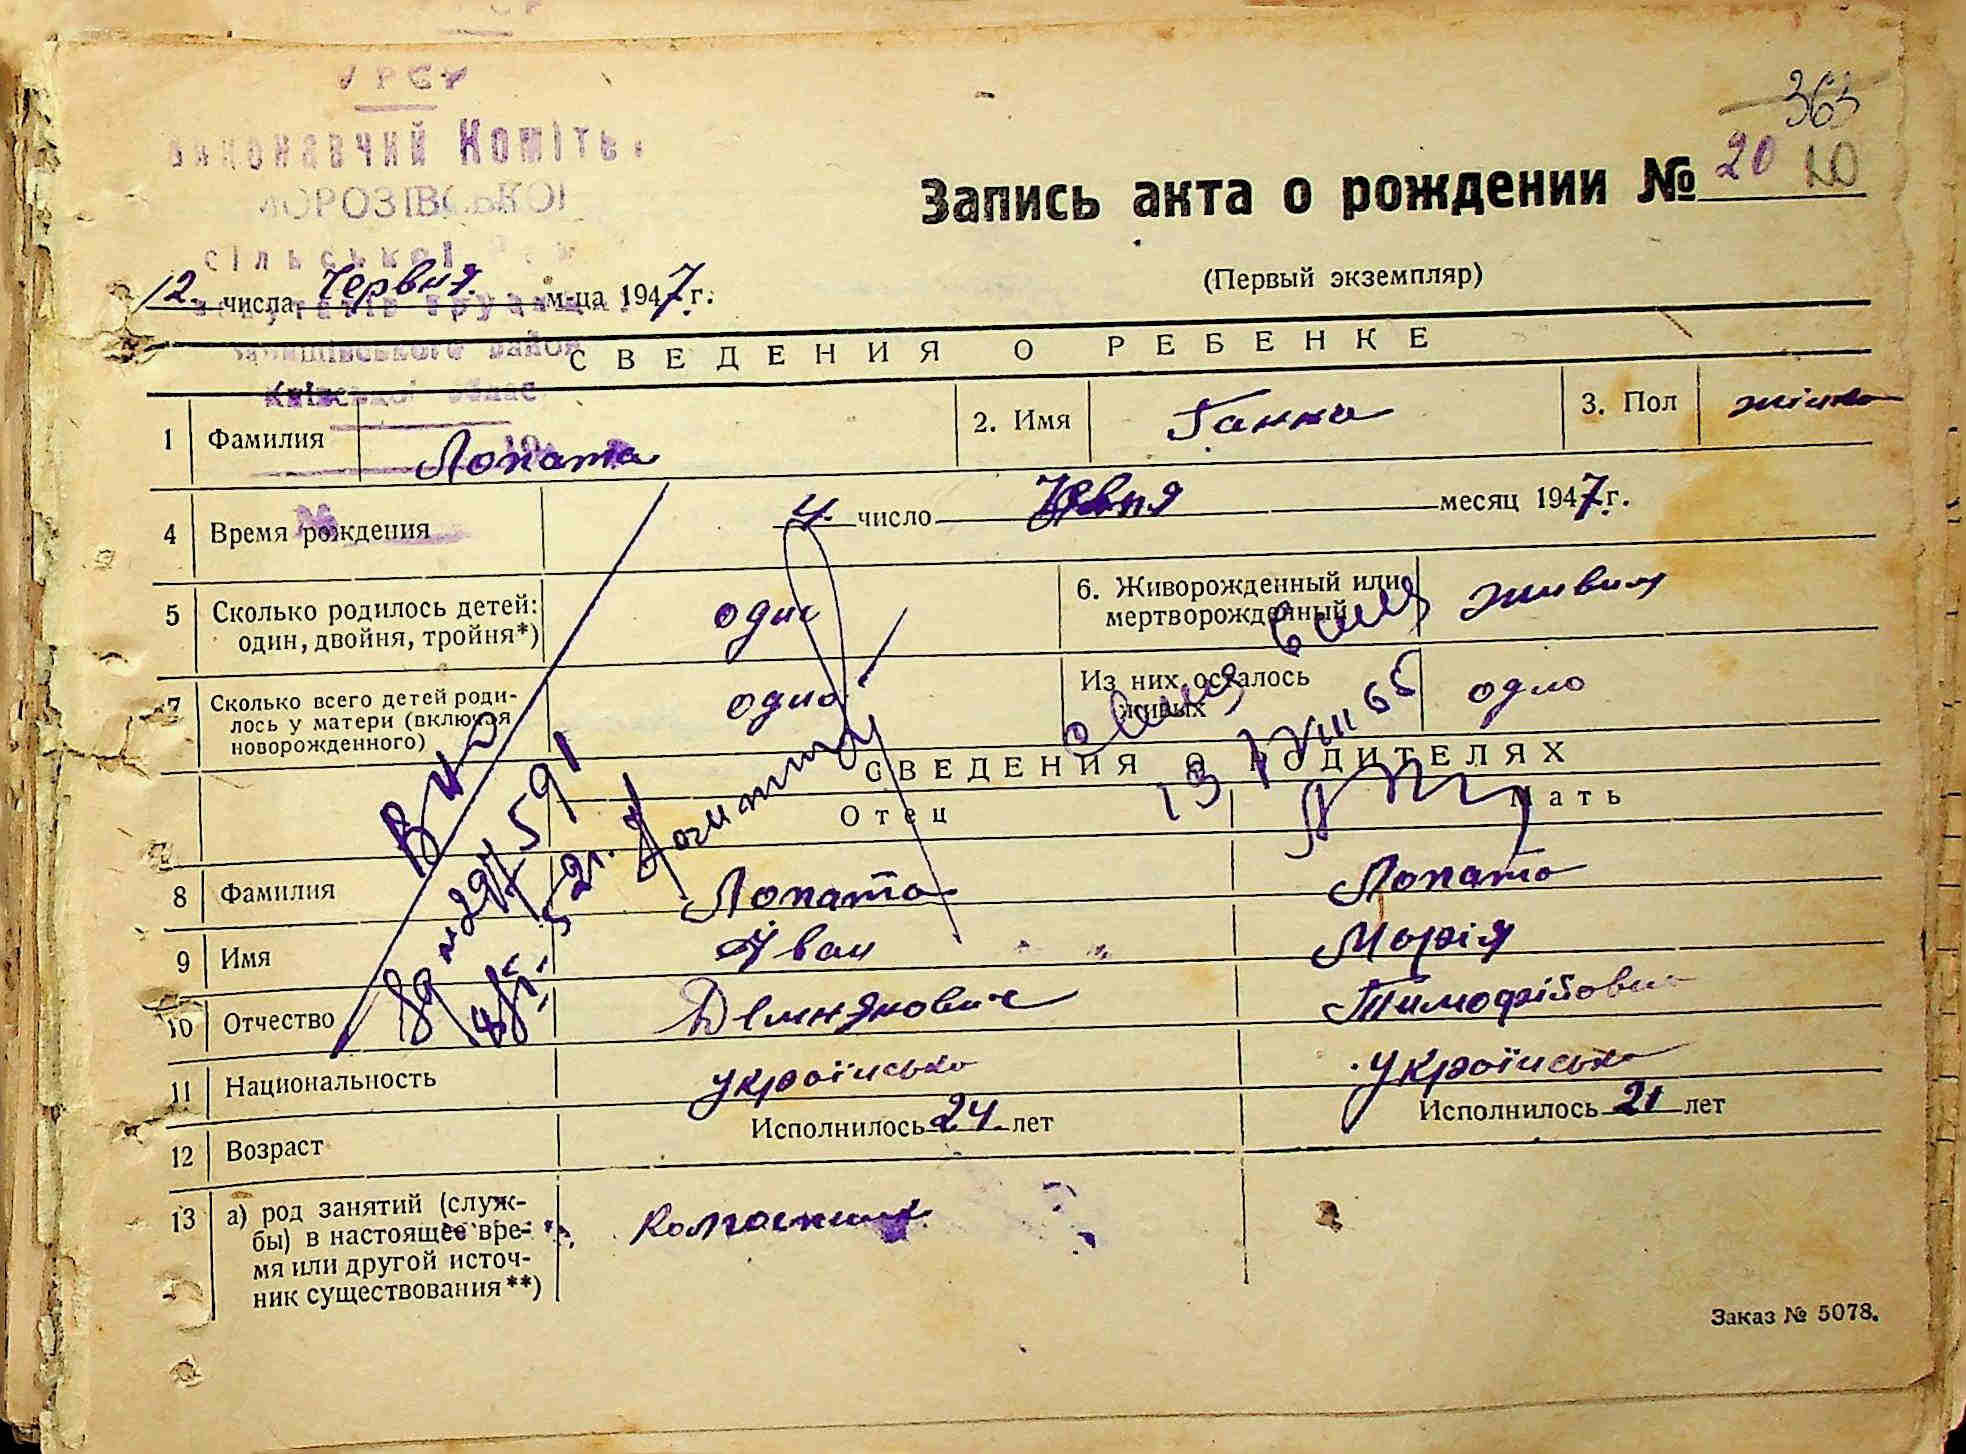 УРСР
Виконавчий Комітет
МОРОЗІВСЬКОЇ
сільської Ради
депутатів трудящих
району
Київської області
363
Запись акта о рождении № 20
(Первый экземпляр)
12 числа Червня м-ца 1947 г.
СВЕДЕНИЯ О РЕБЕНКЕ
1 Фамилия Лопата 2. Имя Ганна 3. Пол жіноч
4 Время рождения 4 число Червня месяц 1947 г.
5 Сколько родилось детей: один, двойня, тройня*) одне 6. Живорожденный или мертворожденный живим
7 Сколько всего детей родилось у матери (включая новорожденного) одно Из них осталось живых одно
СВЕДЕНИЯ О РОДИТЕЛЯХ
Отец Мать
8 Фамилия Лопата Лопата
9 Имя Іван Марія
10 Отчество Демянович Тимофіївна
11 Национальность українська українська
12 Возраст Исполнилось 24 лет Исполнилось 21 лет
13 а) род занятий (служ-
бы) в настоящее вре-
мя или другой источ-
ник существования**) колгоспник
13/VIII 65
Заказ № 5078.